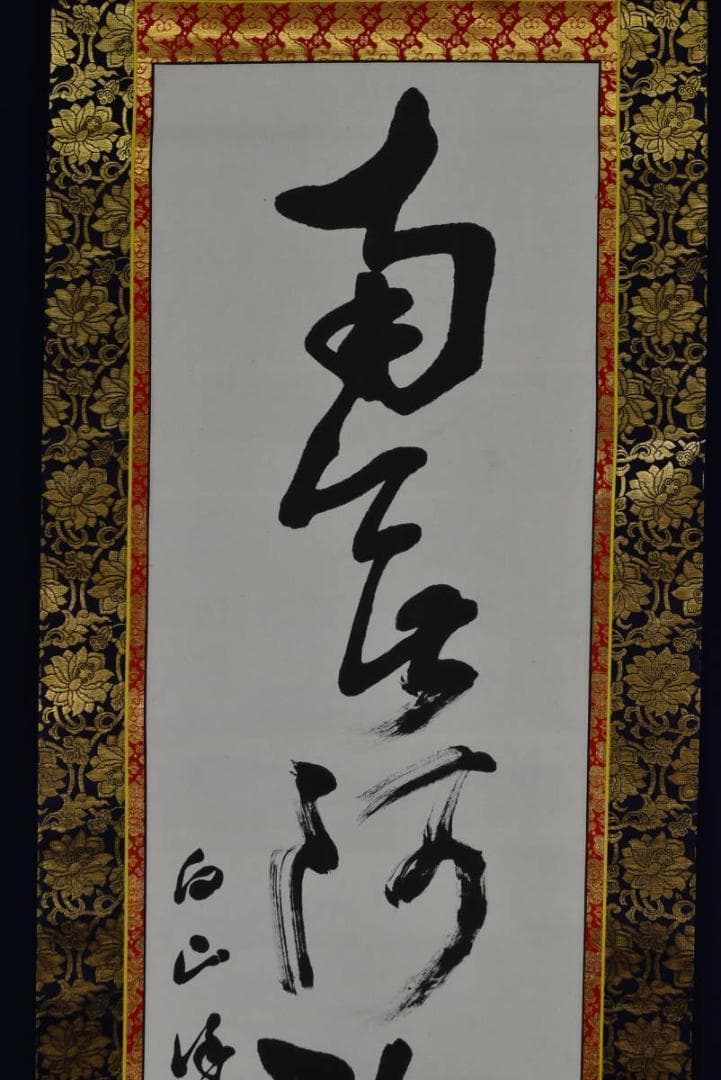 南無阿
白山